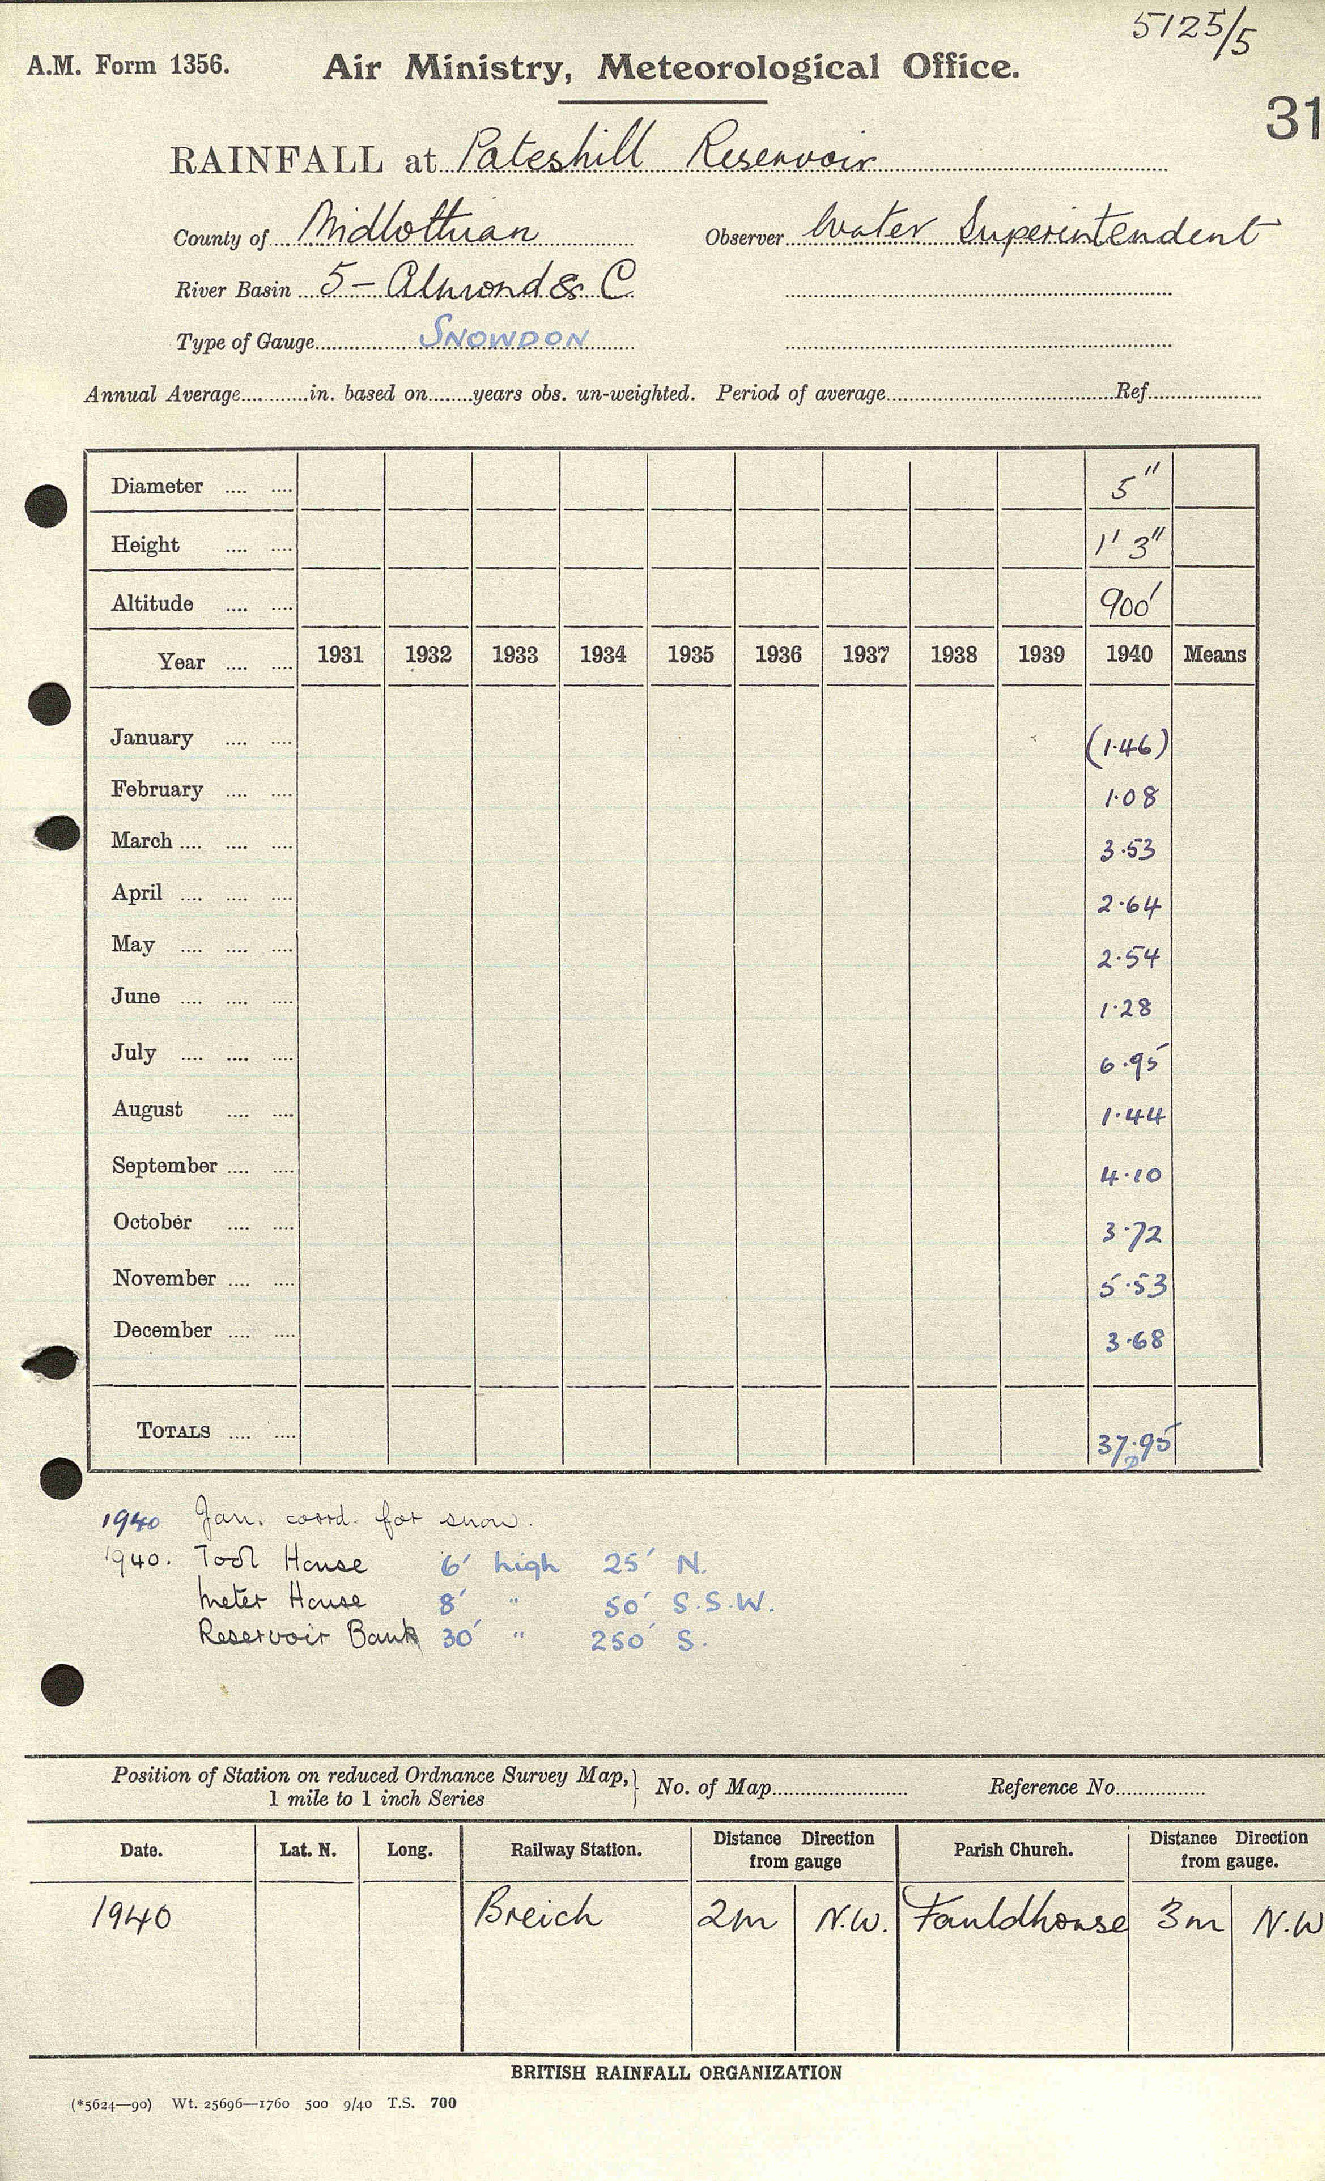 5125/5
A.M. Form 1356. Air Ministry, Meteorological Office.
31
RAINFALL at Pateshill Reservoir
County of Midlothian Observer Water Superintendent
River Basin 5 - Almond & C
Type of Gauge SNOWDON
Annual Average in. based on years obs. un-weighted. Period of average Ref
Diameter 5"
Height 1' 3"
Altitude 900'
Year 1931 1932 1933 1934 1935 1936 1937 1938 1939 1940 Means
January (1.46)
February 1.08
March 3.53
April 2.64
May 2.54
June 1.28
July 6.95
August 1.44
September 4.10
October 3.72
November 5.53
December 3.68
TOTALS 37.95
D
1940 Jan. coord. for snow.
1940. Tool House 6' high 25' N.
Meter House 8' " 50' S.S.W.
Reservoir Bank 30' " 250' S.
Position of Station on reduced Ordnance Survey Map, 1 mile to 1 inch Series } No. of Map Reference No.
Date. Lat. N. Long. Railway Station. Distance Direction from gauge Parish Church. Distance Direction from gauge.
1940 Breich 2m N.W. Fauldhouse 3m N.W
BRITISH RAINFALL ORGANIZATION
(*5624—90) Wt. 25696—1760 500 9/40 T.S. 700